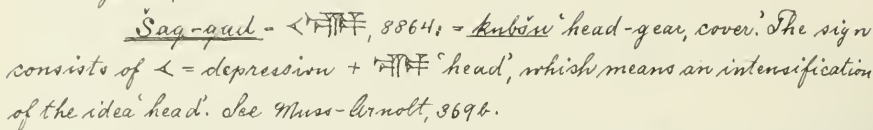 Šag-gud - 𒌋𒊕, 8864; = kubšu 'head-gear, cover.' The sign
consists of 𒌋 = depression + 𒊕 'head', which means an intensification
of the idea 'head'. See Muss-Arnolt, 369b.